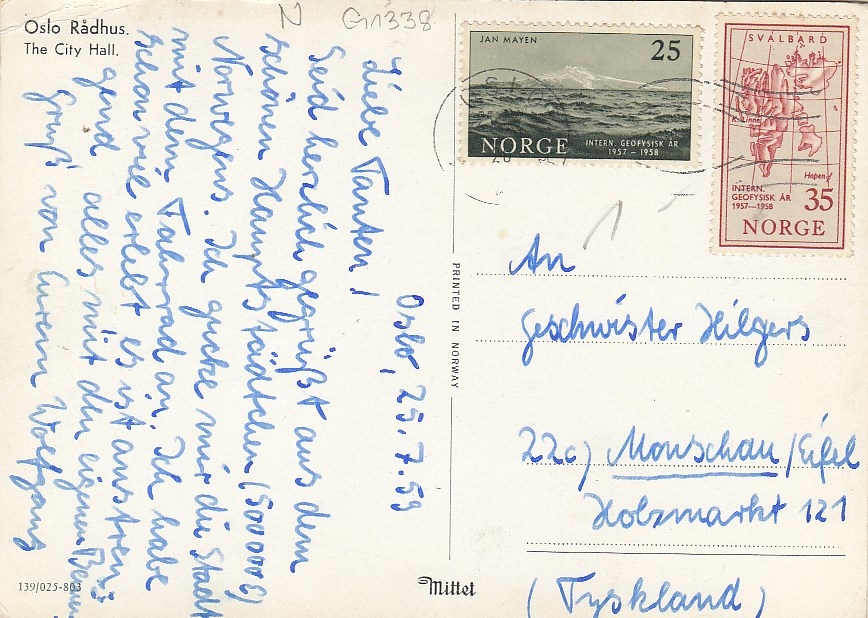 Oslo Rådhus.
The City Hall.
N
G1338
JAN MAYEN
25
NORGE
INTERN. GEOFYSISK ÅR
1957 – 1958
SVALBARD
K. Linné
Hopen
INTERN.
GEOFYSISK ÅR
1957—1958
35
NORGE
Oslo, 25.7.59
Liebe Tanten!
Seid herzlich gegrüßt aus dem
schönen Hauptstädtchen (500000 E)
Norwegens. Ich gucke mir die Stadt
mit dem Fahrrad an. Ich habe
schon viel erlebt es ist anstren-
gend alles mit den eigenen Beinen
Gruß von Eurem Wolfgang
PRINTED IN NORWAY
An
Geschwister Hilgers
22c) Monschau/Eifel
Holzmarkt 121
(Tyskland)
139/025-803
Mittet